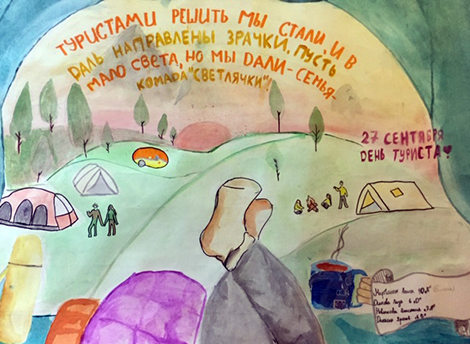 ТУРИСТАМИ РЕШИТЬ МЫ СТАЛИ, И В
ДАЛЬ НАПРАВЛЕНЫ ЗРАЧКИ, ПУСТЬ
МАЛО СВЕТА, НО МЫ DАЛИ-СЕМЬЯ-
КОМАДА "СВЕТЛЯЧКИ"!
27 СЕНТЯБРЯ
DЕНЬ ТУРИСТА